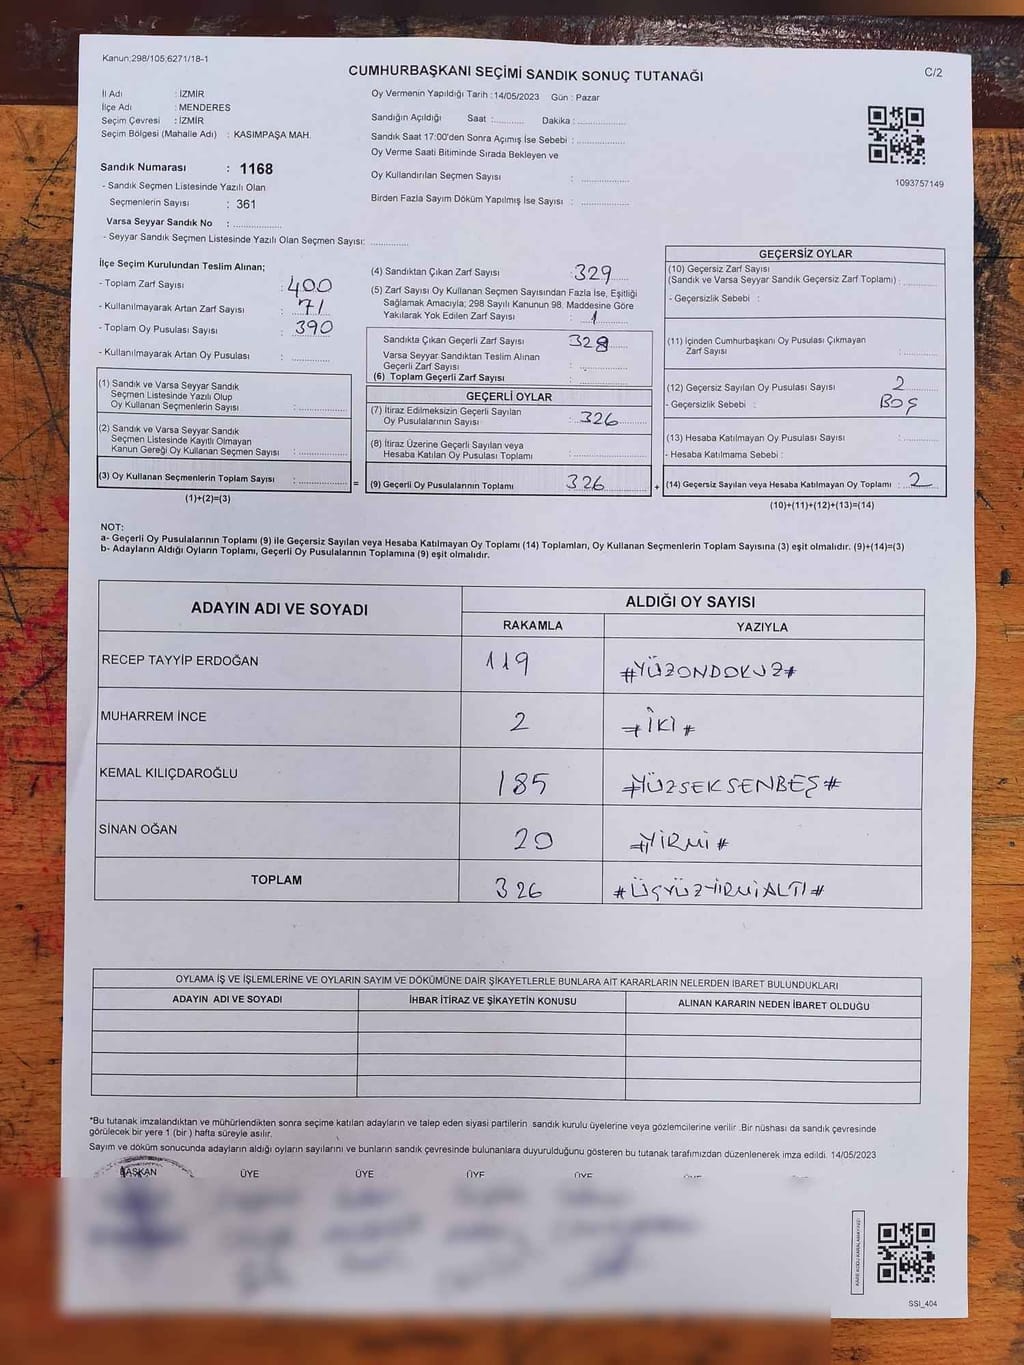 Kanun:298/105,6271/18-1
C/2
CUMHURBAŞKANI SEÇİMİ SANDIK SONUÇ TUTANAĞI
İl Adı : İZMİR
İlçe Adı : MENDERES
Seçim Çevresi : İZMİR
Seçim Bölgesi (Mahalle Adı) : KASIMPAŞA MAH.
Sandık Numarası : 1168
- Sandık Seçmen Listesinde Yazılı Olan
Seçmenlerin Sayısı : 361
Varsa Seyyar Sandık No :
- Seyyar Sandık Seçmen Listesinde Yazılı Olan Seçmen Sayısı:
Oy Vermenin Yapıldığı Tarih :14/05/2023 Gün : Pazar
Sandığın Açıldığı Saat : Dakika :
Sandık Saat 17:00'den Sonra Açımış İse Sebebi :
Oy Verme Saati Bitiminde Sırada Bekleyen ve
Oy Kullandırılan Seçmen Sayısı :
Birden Fazla Sayım Döküm Yapılmış İse Sayısı :
1093757149
İlçe Seçim Kurulundan Teslim Alınan;
- Toplam Zarf Sayısı : 400
- Kullanılmayarak Artan Zarf Sayısı : 71
- Toplam Oy Pusulası Sayısı : 390
- Kullanılmayarak Artan Oy Pusulası :
(1) Sandık ve Varsa Seyyar Sandık
Seçmen Listesinde Yazılı Olup
Oy Kullanan Seçmenlerin Sayısı :
(2) Sandık ve Varsa Seyyar Sandık
Seçmen Listesinde Kayıtlı Olmayan
Kanun Gereği Oy Kullanan Seçmen Sayısı :
(3) Oy Kullanan Seçmenlerin Toplam Sayısı :
(1)+(2)=(3)
=
(4) Sandıktan Çıkan Zarf Sayısı : 329
(5) Zarf Sayısı Oy Kullanan Seçmen Sayısından Fazla İse, Eşitliği
Sağlamak Amacıyla; 298 Sayılı Kanunun 98. Maddesine Göre
Yakılarak Yok Edilen Zarf Sayısı : 1
Sandıkta Çıkan Geçerli Zarf Sayısı 328
Varsa Seyyar Sandıktan Teslim Alınan
Geçerli Zarf Sayısı :
(6) Toplam Geçerli Zarf Sayısı :
GEÇERLİ OYLAR
(7) İtiraz Edilmeksizin Geçerli Sayılan
Oy Pusulalarının Sayısı : 326
(8) İtiraz Üzerine Geçerli Sayılan veya
Hesaba Katılan Oy Pusulası Toplamı :
(9) Geçerli Oy Pusulalarının Toplamı 326
+
GEÇERSİZ OYLAR
(10) Geçersiz Zarf Sayısı
(Sandık ve Varsa Seyyar Sandık Geçersiz Zarf Toplamı) :
- Geçersizlik Sebebi :
(11) İçinden Cumhurbaşkanı Oy Pusulası Çıkmayan
Zarf Sayısı :
(12) Geçersiz Sayılan Oy Pusulası Sayısı : 2
- Geçersizlik Sebebi : BOŞ
(13) Hesaba Katılmayan Oy Pusulası Sayısı :
- Hesaba Katılmama Sebebi :
(14) Geçersiz Sayılan veya Hesaba Katılmayan Oy Toplamı : 2
(10)+(11)+(12)+(13)=(14)
NOT:
a- Geçerli Oy Pusulalarının Toplamı (9) ile Geçersiz Sayılan veya Hesaba Katılmayan Oy Toplamı (14) Toplamları, Oy Kullanan Seçmenlerin Toplam Sayısına (3) eşit olmalıdır. (9)+(14)=(3)
b- Adayların Aldığı Oyların Toplamı, Geçerli Oy Pusulalarının Toplamına (9) eşit olmalıdır.
ADAYIN ADI VE SOYADI ALDIĞI OY SAYISI
RAKAMLA YAZIYLA
RECEP TAYYİP ERDOĞAN 119 #YÜZONDOKUZ#
MUHARREM İNCE 2 #İKİ#
KEMAL KILIÇDAROĞLU 185 #YÜZSEKSENBEŞ#
SİNAN OĞAN 20 #YİRMİ#
TOPLAM 326 #ÜÇYÜZYİRMİALTI#
OYLAMA İŞ VE İŞLEMLERİNE VE OYLARIN SAYIM VE DÖKÜMÜNE DAİR ŞİKAYETLERLE BUNLARA AİT KARARLARIN NELERDEN İBARET BULUNDUKLARI
ADAYIN ADI VE SOYADI İHBAR İTİRAZ VE ŞİKAYETİN KONUSU ALINAN KARARIN NEDEN İBARET OLDUĞU
*Bu tutanak imzalandıktan ve mühürlendikten sonra seçime katılan adayların ve talep eden siyasi partilerin sandık kurulu üyelerine veya gözlemcilerine verilir .Bir nüshası da sandık çevresinde
görülecek bir yere 1 (bir ) hafta süreyle asılır.
Sayım ve döküm sonucunda adayların aldığı oyların sayılarını ve bunların sandık çevresinde bulunanlara duyurulduğunu gösteren bu tutanak tarafımızdan düzenlenerek imza edildi. 14/05/2023
BAŞKAN ÜYE ÜYE ÜYE ÜYE
SSI_404